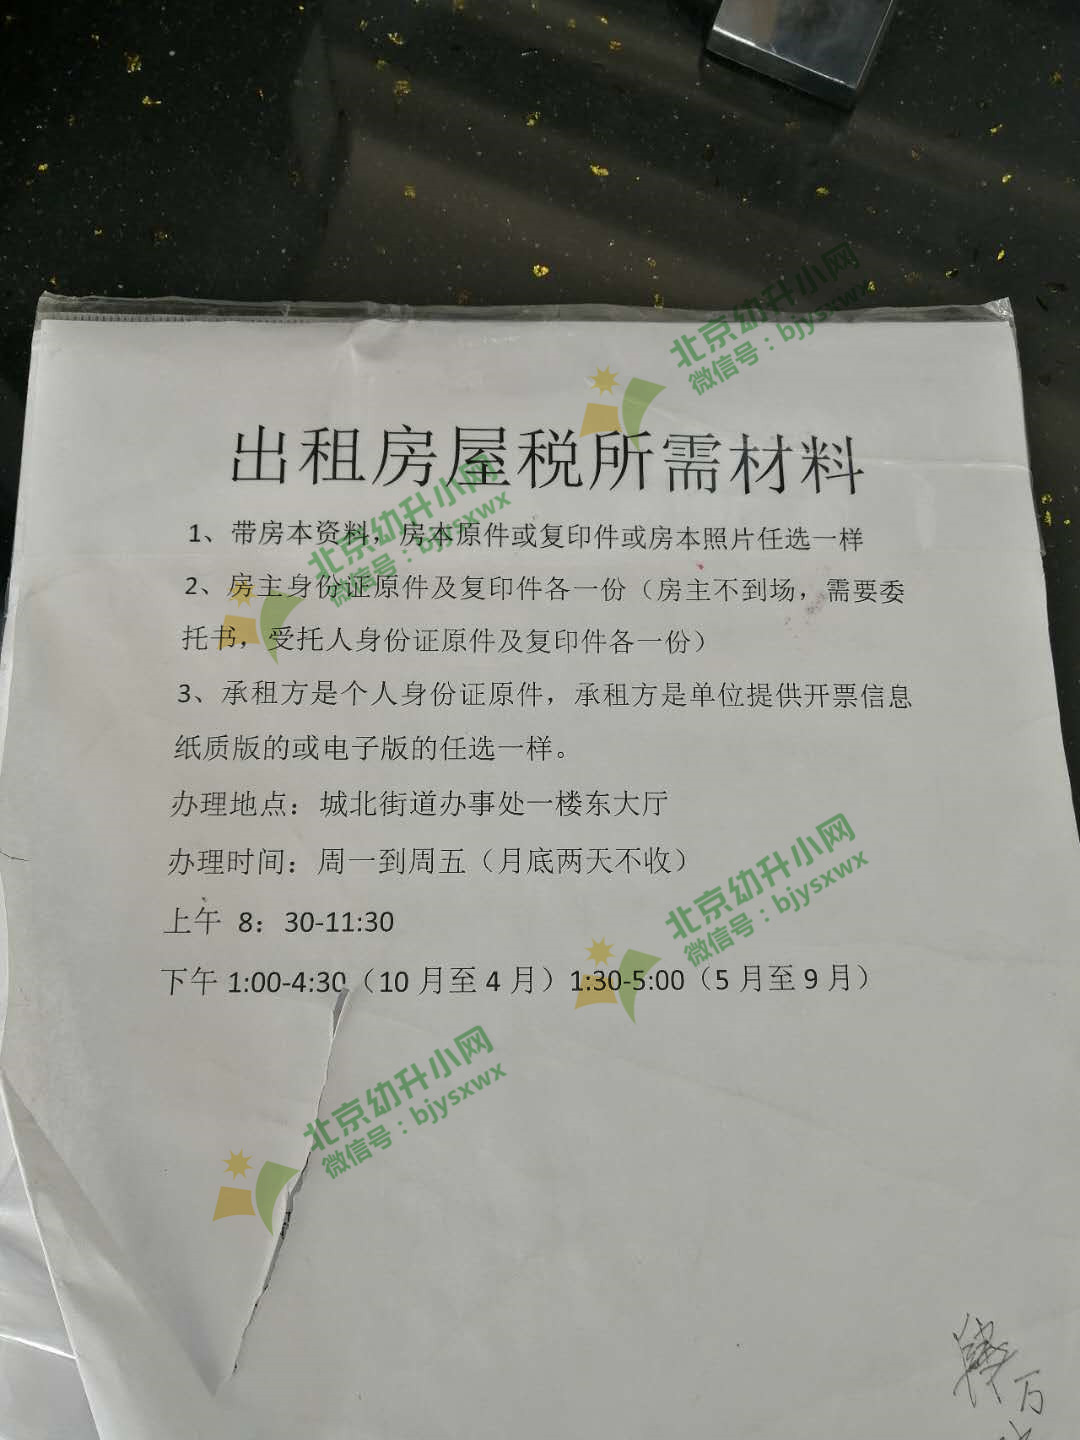 北京幼升小网
微信号：bjysxwx
出租房屋税所需材料
北京幼升小网
微信号：bjysxwx
1、带房本资料，房本原件或复印件或房本照片任选一样
2、房主身份证原件及复印件各一份（房主不到场，需要委
托书，受托人身份证原件及复印件各一份）
3、承租方是个人身份证原件，承租方是单位提供开票信息
纸质版的或电子版的任选一样。
办理地点：城北街道办事处一楼东大厅
办理时间：周一到周五（月底两天不收）
北京幼升小网
微信号：bjysxwx
上午 8：30-11:30
下午 1:00-4:30（10 月至 4 月）1:30-5:00（5 月至 9 月）
北京幼升小网
微信号：bjysxwx
万